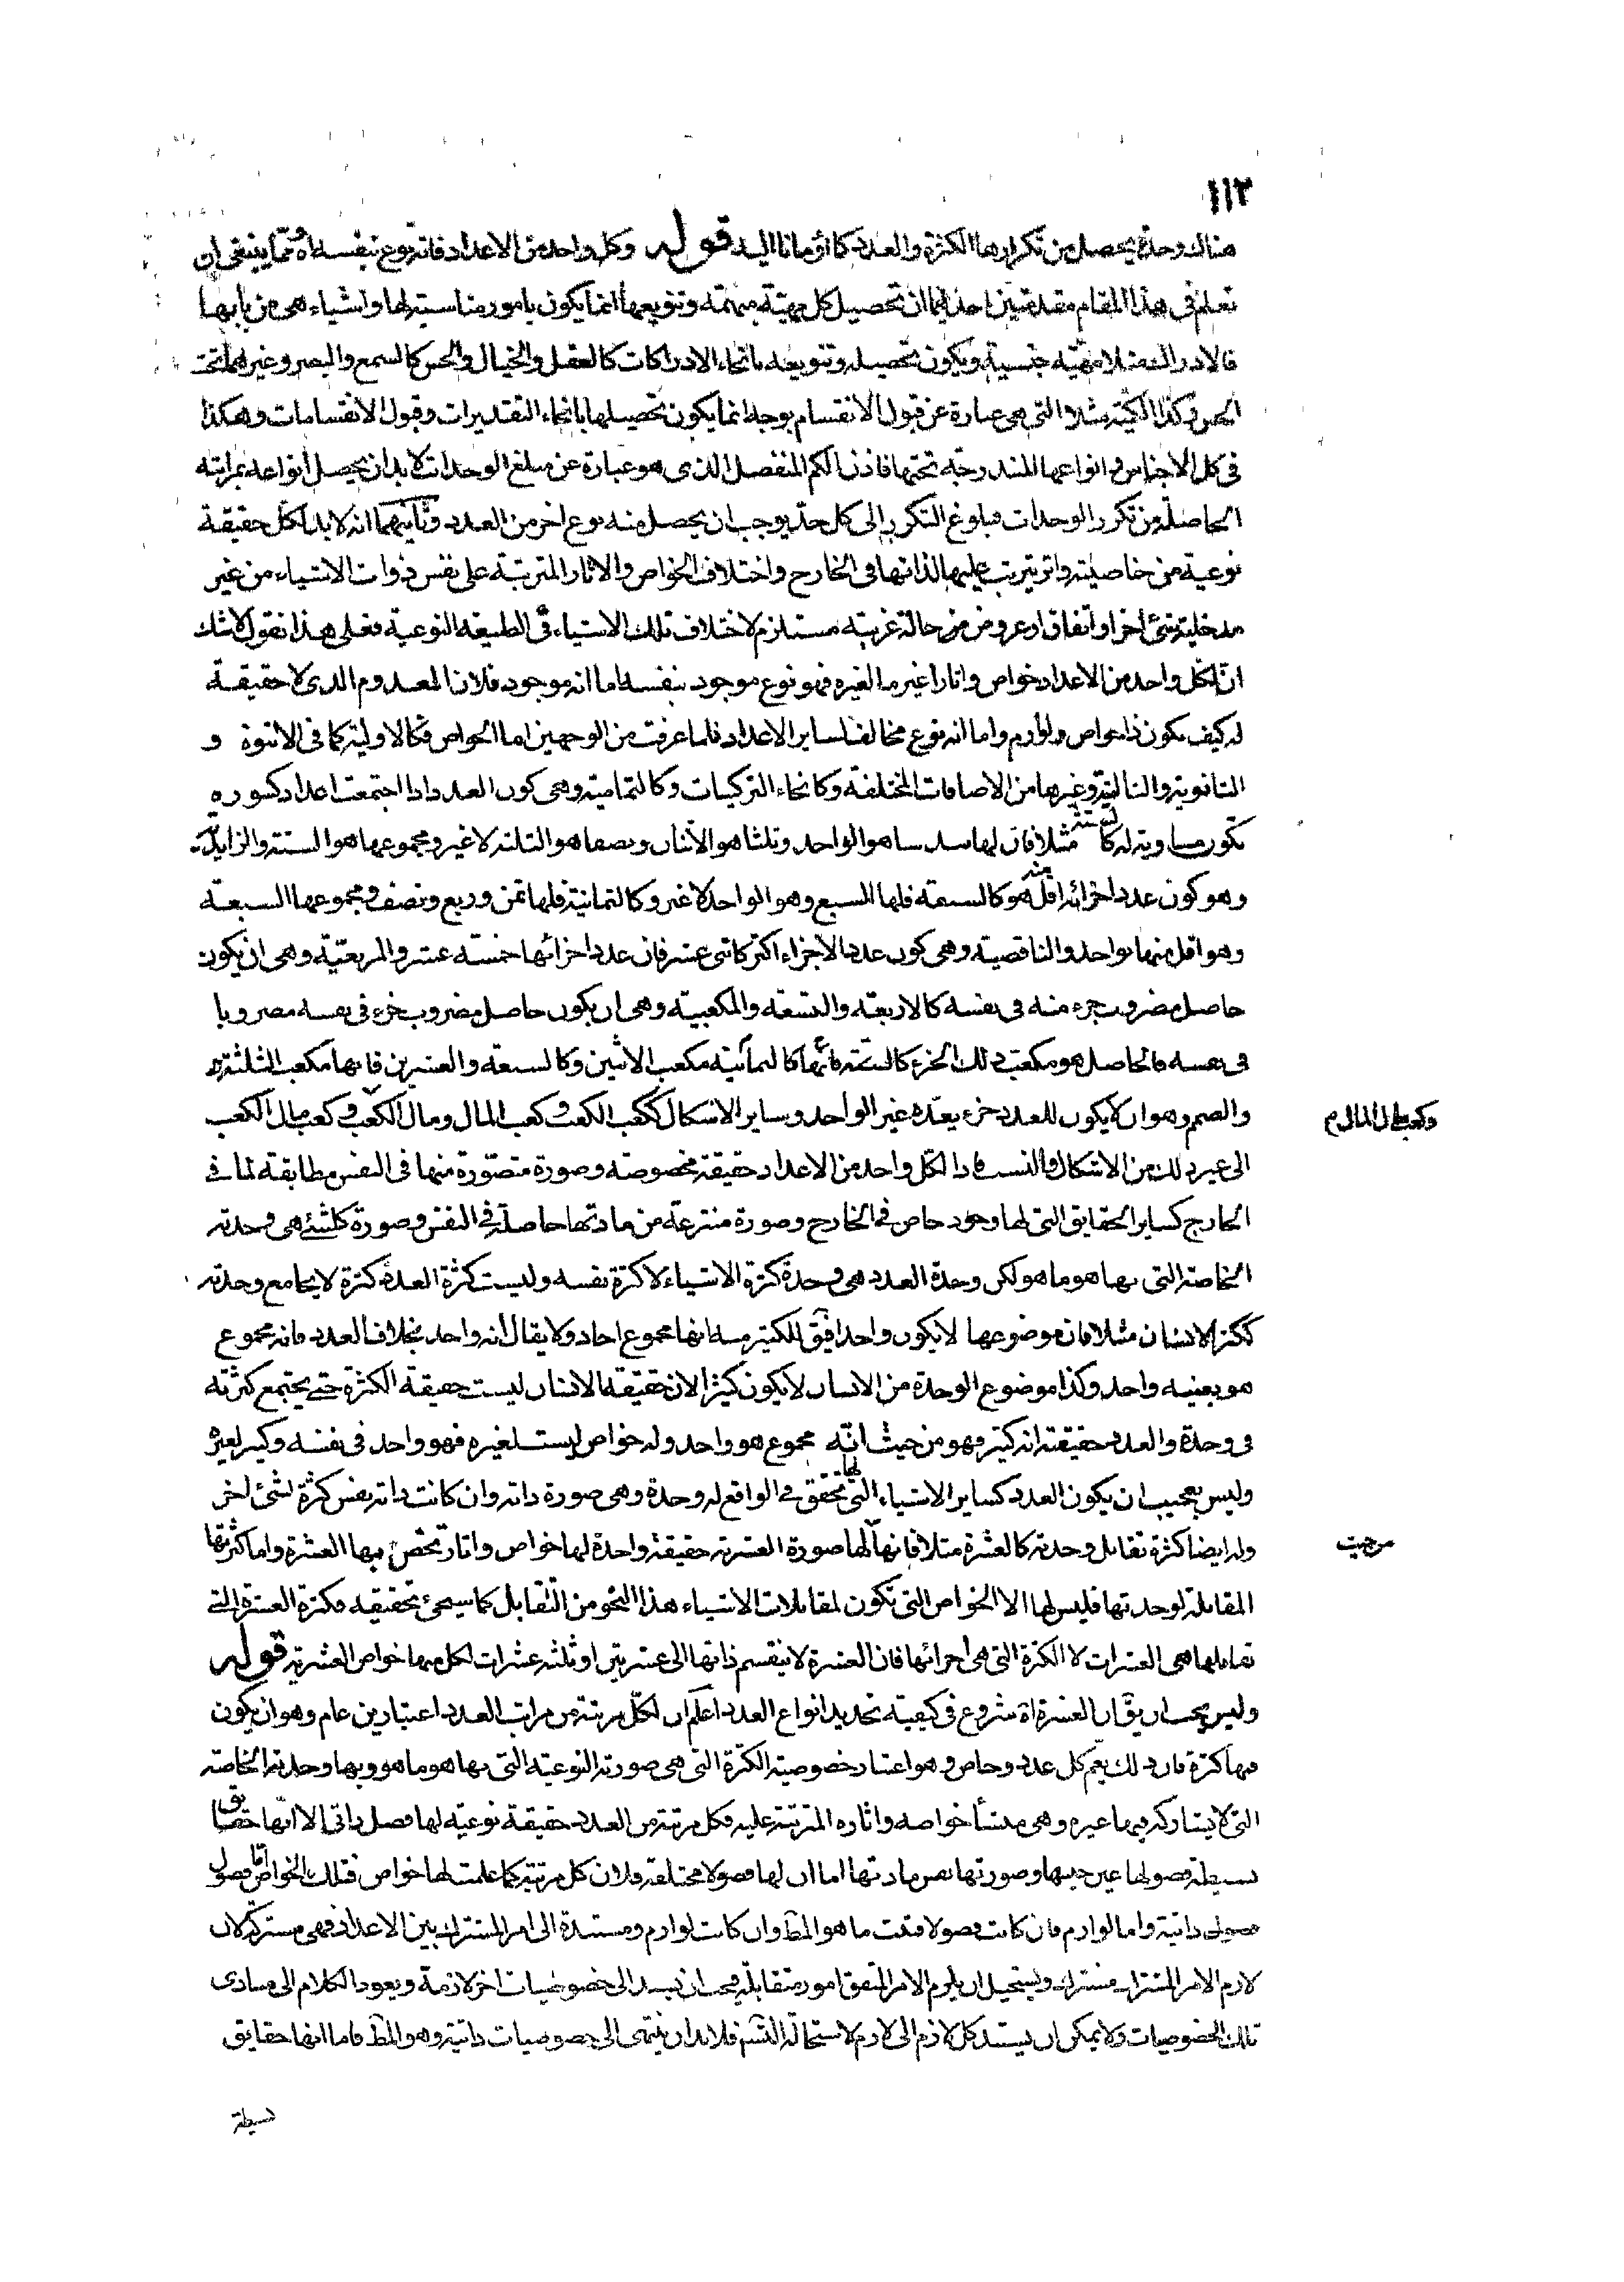 ١١٢
هناك وحدة يحصل من تكرارها الكثرة والعدد كما اومانا اليه قوله وكل واحد من الاعداد فانه نوع بنفسه اه مما ينبغى ان
تعلم فى هذا المقام مقدمتين احديهما ان تحصيل كل مهيّة مبهمة وتنويعها انما يكون بامور مناسبة لها واشياء هى من بابها
فالادراك مثلا مهيّة جنسية ويكون تحصيله وتنويعه بانحاء الادراكات كالعقل والخيال والحس كالسمع والبصر وغيرهما تحت
الحس وكذا الكمية مثلا التى هى عبارة عن قبول الانقسام بوجه انما يكون تحصيلها بانحاء التقديرات وقبول الانقسامات وهكذا
فى كل الاجناس وانواعها المندرجة تحتها فاذن الكم المنفصل الذى هو عبارة عن مبلغ الوحدات لا بد ان يحصل انواعه بمراتبه
الحاصلة من تكرر الوحدات فبلوغ التكرر الى كل حدّ يوجب ان يحصل منه نوع اخر من العدد وثانيتهما انه لا بد لكل حقيقة
نوعية من خاصيته واثر يترتب عليها لذاتها فى الخارج واختلاف الخواص والاثار المترتبة على نفس ذوات الاشياء من غير
مدخلية شئ اخر او اتفاق او عروض من حالة غريبة مستلزم لاختلاف تلك الاشياء فى الطبيعة النوعية فعلى هذا نقول لا شك
ان لكل واحد من الاعداد خواص واثارا غير ما لغيره فهو نوع موجود بنفسه اما انه موجود فلان المعدوم الذى لا حقيقة
له كيف يكون ذا خواص ولوازم واما انه نوع مخالف لساير الاعداد فلما عرفت من الوجهين اما الخواص فكالاولية كما فى الاثنوة و
الثانوية والثالثية وغيرها من الاضافات المختلفة وكانحاء التركيبات وكالتمامية وهى كون العدد اذا اجتمعت اعداد كسوره
تكون مساوية له كالستة مثلا فان لها سدسا هو الواحد وثلثا هو الاثنان ونصفا هو الثلثة لا غير ومجموعها هو الستة والزايدية
وهو كون عدد اجزائه اقل منه هو كالسبعة فلها السبع وهو الواحد لا غير وكالثمانية فلها ثمن وربع ونصف ومجموعها السبعة
وهو اقل منها بواحد والناقصية وهى كون عدد الاجزاء اكثر كاثنى عشر فان عدد اجزائها خمسة عشر والمربعيّة وهى ان يكون
حاصل مضروب جزء منه فى نفسه كالاربعة والتسعة والمكعبية وهى ان يكون حاصل مضروب جزء فى نفسه مضروبا
فى نفسه فالحاصل هو مكعب ذلك الجزء كالستة فانها كالثمانية مكعب الاثنين وكالسبعة والعشرين فانها مكعب الثلثة
والصم وهو ان لا يكون للعدد جزء يعدّه غير الواحد وساير الاشكال ككعب الكعب وكعب المال ومال الكعب وكعب مال الكعب
وكعب مال المال م
الى غير ذلك من الاشكال والنسب فاذا لكل واحد من الاعداد حقيقة مخصوصة وصورة متصورة منها فى النفس مطابقة لما فى
الخارج كساير الحقايق التى لها وجود خاص فى الخارج وصورة منتزعة من مادتها حاصلة فى النفس وصورة كل شئ هى وحدته
الخاصة التى بها هو ما هو لكن وحدة العدد هى وحدة كثرة الاشياء لا كثرة نفسه وليست كثرة العدد كثرة لا يجامع وحدته
ككثرة الانسان مثلا فان موضوعها لا يكون واحدا فى الكثير منه انها مجموع احاد ولا يقال انه واحد بخلاف العدد فانه مجموع
هو بعينه واحد وكذا موضوع الوحدة من الانسان لا يكون كثيرا لان حقيقة الانسان ليست حقيقة الكثرة حتى يجتمع كثرته
فى وحدة والعدد حقيقته انه كثير فهو من حيث انه مجموع هو واحد وله خواص ليست لغيره فهو واحد فى نفسه وكثير لغيره
وليس بعجيب ان يكون العدد كساير الاشياء التى لها تحقق فى الواقع له وحدة وهى صورة ذاته وان كانت ذاته نفس كثرة لشئ اخر
وله ايضا كثرة تقابل وحدته كالعشرة مثلا فانها لها صورة العشرية حقيقة واحدة لها خواص واثار تختص بها العشرة واما كثرتها
من حيث
المقابلة لوحدتها فليس لها الا الخواص التى تكون لمقابلات الاشياء هذا النحو من التقابل كما سيجئ تحقيقه فكثرة العشرة التى
تقابلها هى العشرات لا الكثرة التى هى اجزائها فان العشرة لا ينقسم ذاتها الى عشريتين او ثلث عشرات لكل منها خواص العشرية قوله
وليس يجب ان يق ان العشرة اه شروع فى كيفية تحديد انواع العدد اعلم ان لكل مرتبة من مراتب العدد اعتبارين عام وهو ان يكون
فيها كثرة فان ذلك يعم كل عدد وخاص وهو اعتبار خصوصية الكثرة التى هى صورته النوعية التى بها هو ما هو وبها وحدته الخاصة
التى لا يشاركه فيها غيره وهى منشأ خواصه واثاره المترتبة عليه فكل مرتبة من العدد حقيقة نوعية لها فصل ذاتى الا انها حقايق
بسيطة فصولها عين جنسها وصورتها نفس مادتها اما ان لها فصولا مختلفة فلان كل مرتبة كما علمت لها خواص فتلك الخواص اما فصول
فصول ذاتية واما لوازم فان كانت فصولا فثبت ما هو المط وان كانت لوازم ومستندة الى امر المشترك بين الاعداد فهى مشتركة لان
لازم الامر المشترك مشترك ويستحيل ان يلزم الامر المتفق امور متقابلة فيجب ان يسند الى خصوصيات اخر لازمة ويعود الكلام الى مبادى
تلك الخصوصيات ولا يمكن ان يستند كل لازم الى لازم لاستحالة التس فلا بد ان ينتهى الى خصوصيات ذاتية وهو المط فاما انها حقايق
بسيطة